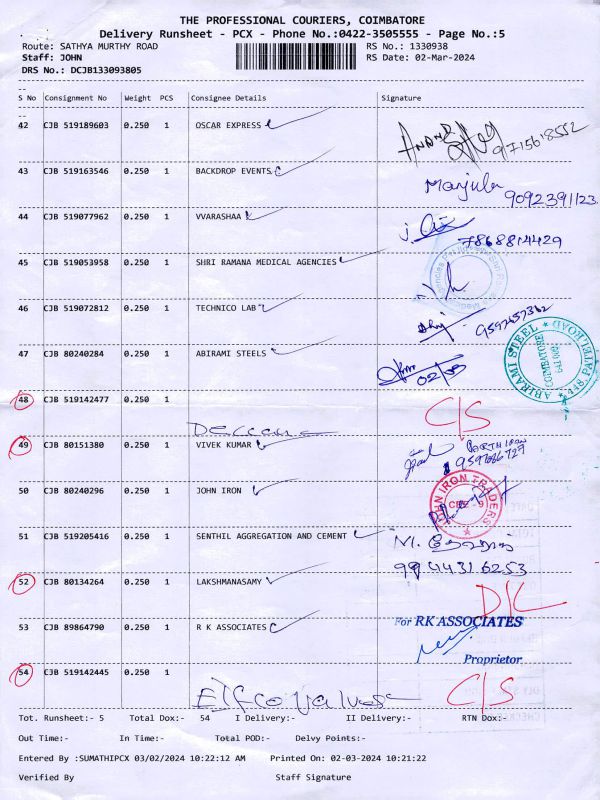 THE PROFESSIONAL COURIERS, COIMBATORE
Delivery Runsheet - PCX - Phone No.:0422-3505555 - Page No.:5
Route: SATHYA MURTHY ROAD RS No.: 1330938
Staff: JOHN RS Date: 02-Mar-2024
DRS No.: DCJB133093805
--
S No Consignment No Weight PCS Consignee Details Signature
--
42 CJB 519189603 0.250 1 OSCAR EXPRESS ANAND 9715618552
43 CJB 519163546 0.250 1 BACKDROP EVENTS Manjula 9092391123
44 CJB 519077962 0.250 1 VVARASHAA 7868814429
45 CJB 519053958 0.250 1 SHRI RAMANA MEDICAL AGENCIES
46 CJB 519072812 0.250 1 TECHNICO LAB
47 CJB 80240284 0.250 1 ABIRAMI STEELS 02/03
ABIRAMI STEEL COIMBATORE 641 002 PATEL ROAD
48 CJB 519142477 0.250 1 C/S
Deccana
49 CJB 80151380 0.250 1 VIVEK KUMAR
50 CJB 80240296 0.250 1 JOHN IRON
JOHN IRON TRADERS CBE - 9
51 CJB 519205416 0.250 1 SENTHIL AGGREGATION AND CEMENT M.
9944316253
52 CJB 80134264 0.250 1 LAKSHMANASAMY D/L
53 CJB 89864790 0.250 1 R K ASSOCIATES For RK ASSOCIATES
Proprietor
54 CJB 519142445 0.250 1 C/S
Tot. Runsheet:- 5 Total Dox:- 54 I Delivery:- II Delivery:- RTN Dox:-
Out Time:- In Time:- Total POD:- Delvy Points:-
Entered By :SUMATHIPCX 03/02/2024 10:22:12 AM Printed On: 02-03-2024 10:21:22
Verified By Staff Signature